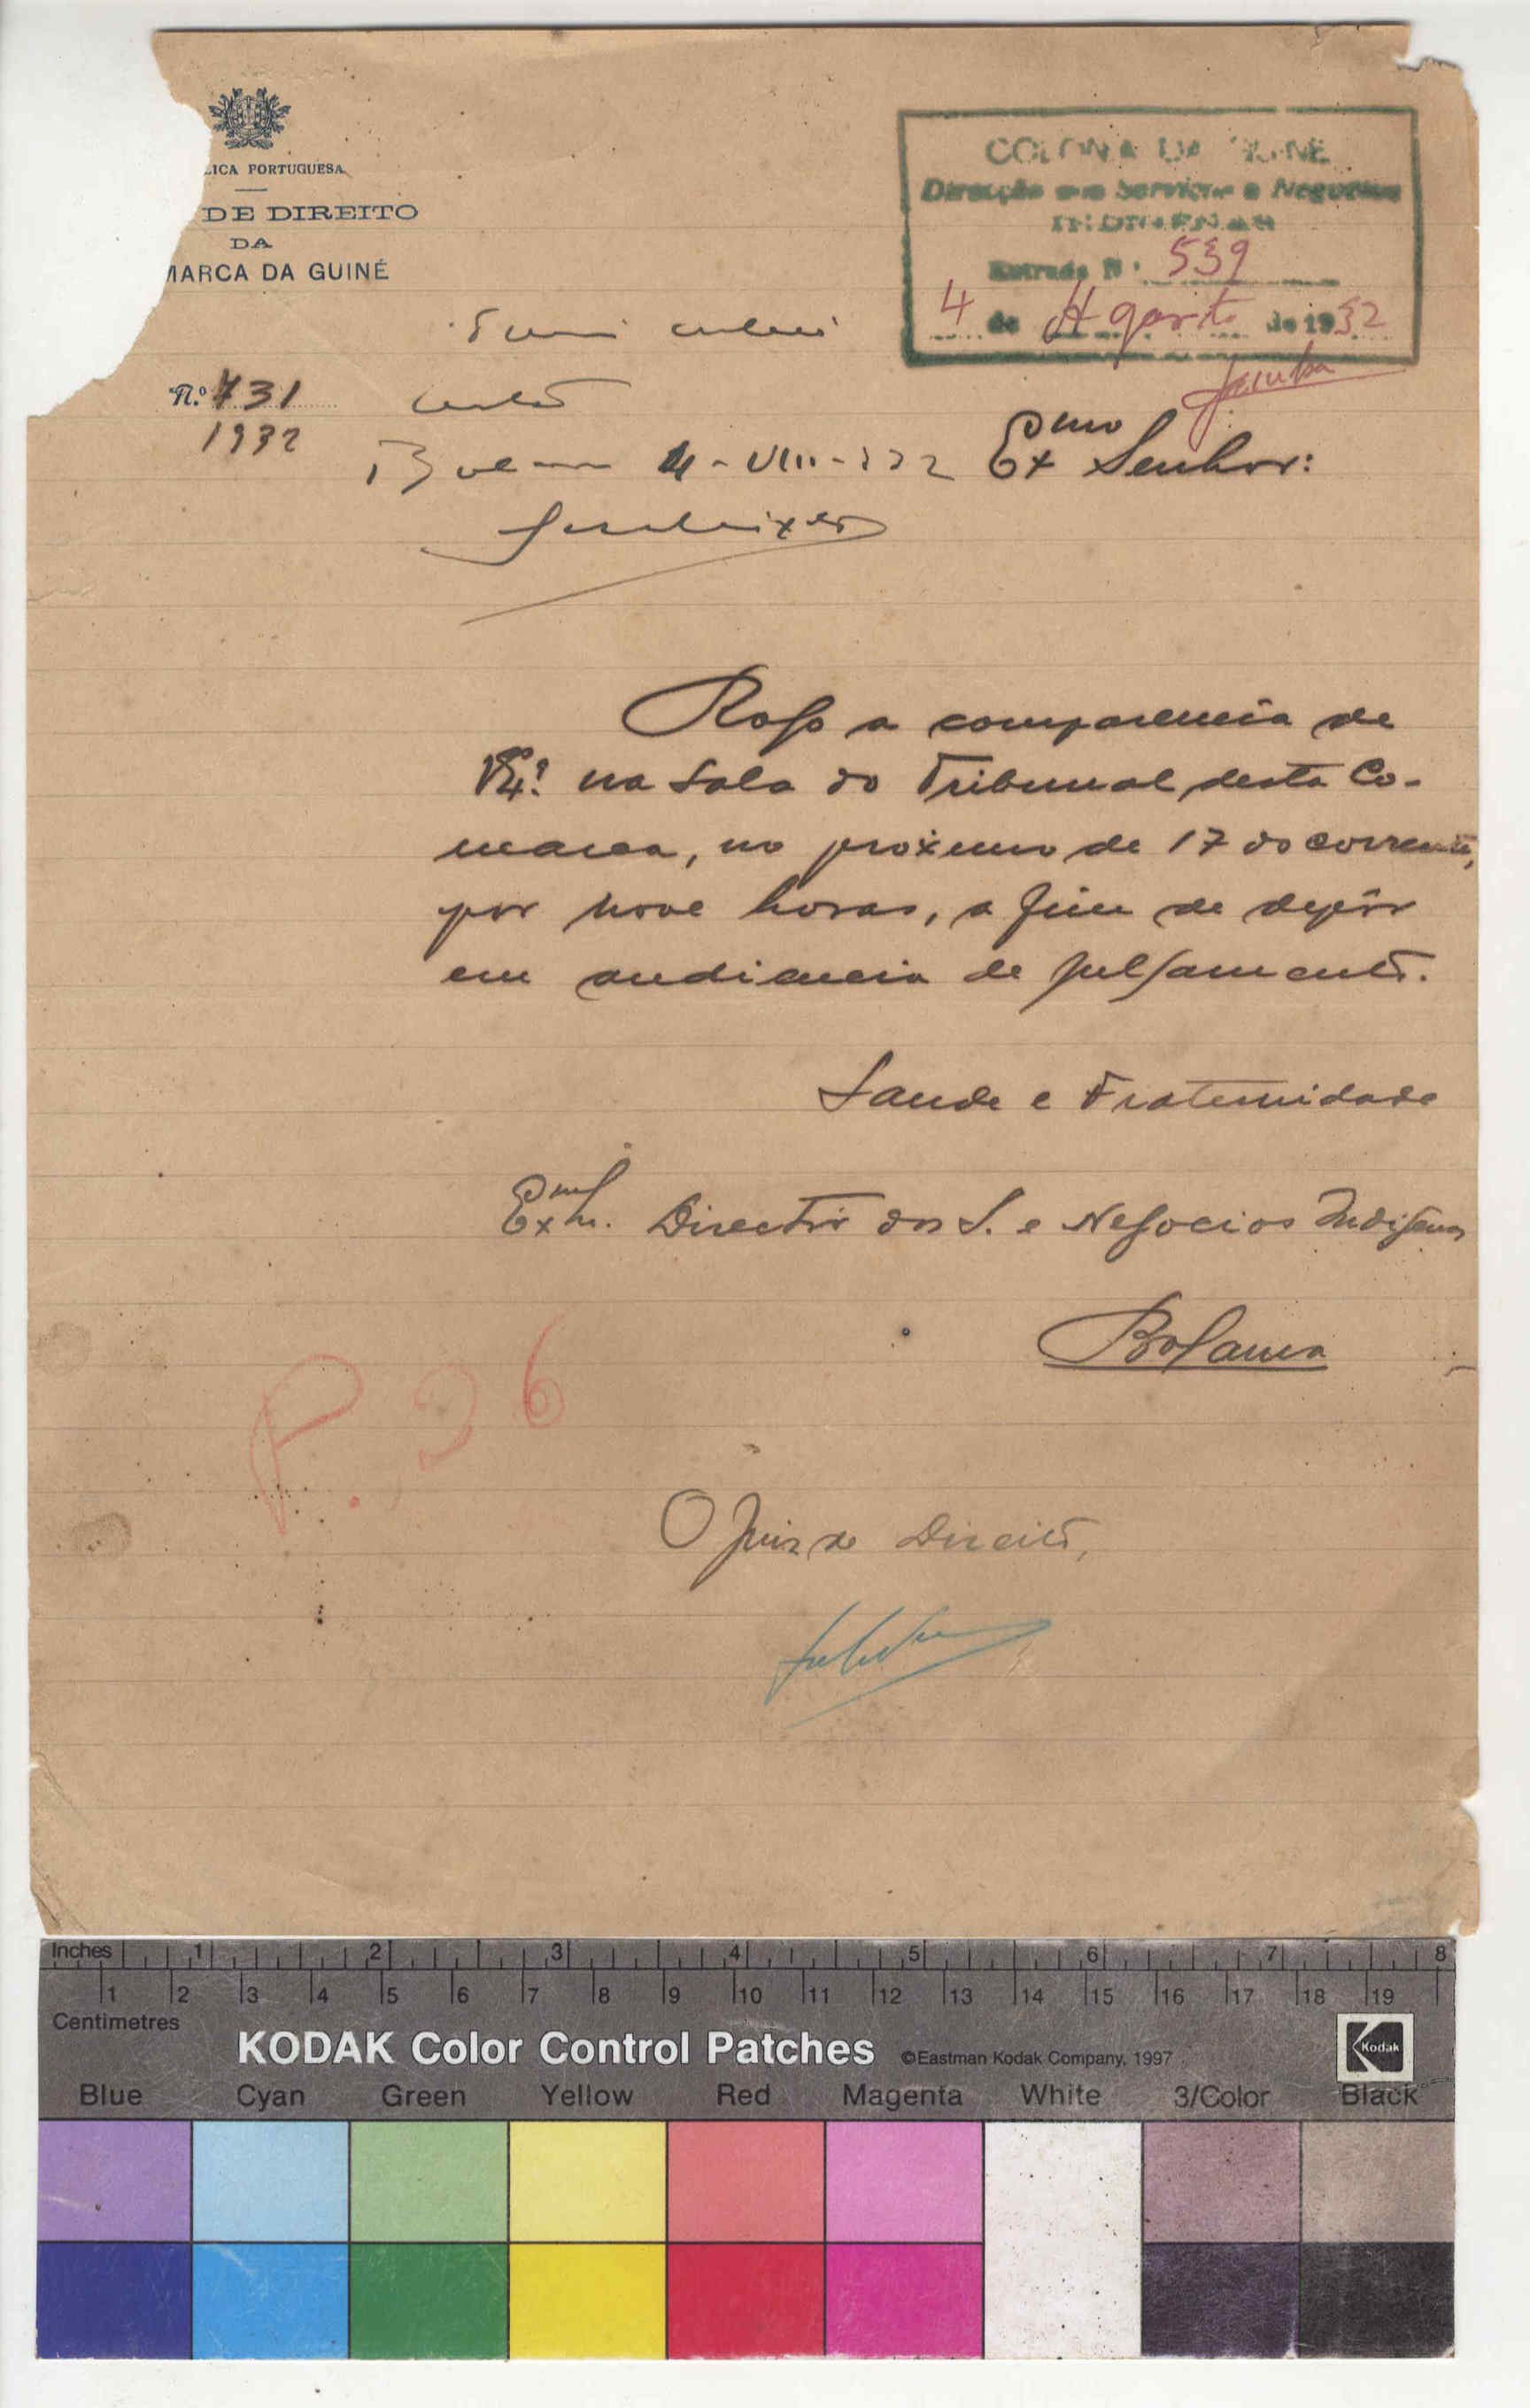 LICA PORTUGUESA
DE DIREITO
DA
MARCA DA GUINÉ
COLONIA DA GUINE
Direcção dos Serviços e Negocios
INDIGENAS
Entrada N.º 539
4 de Agosto de 1932
N.º 731
1932
4-VIII-932
Exmo Senhor:
Rogo a comparencia de
V. Ex.ª na sala do Tribunal desta Co-
marca, no proximo de 17 do corrente,
por nove horas, a fim de depôr
em audiencia de julgamento.
Saude e Fraternidade
Exmo Sr. Director dos S. e Negocios Indigenas
Bolama
P. 36
O Juiz de Direito,
Inches 1 2 3 4 5 6 7 8
1 2 3 4 5 6 7 8 9 10 11 12 13 14 15 16 17 18 19
Centimetres
KODAK Color Control Patches ©Eastman Kodak Company, 1997 Kodak
Blue Cyan Green Yellow Red Magenta White 3/Color Black